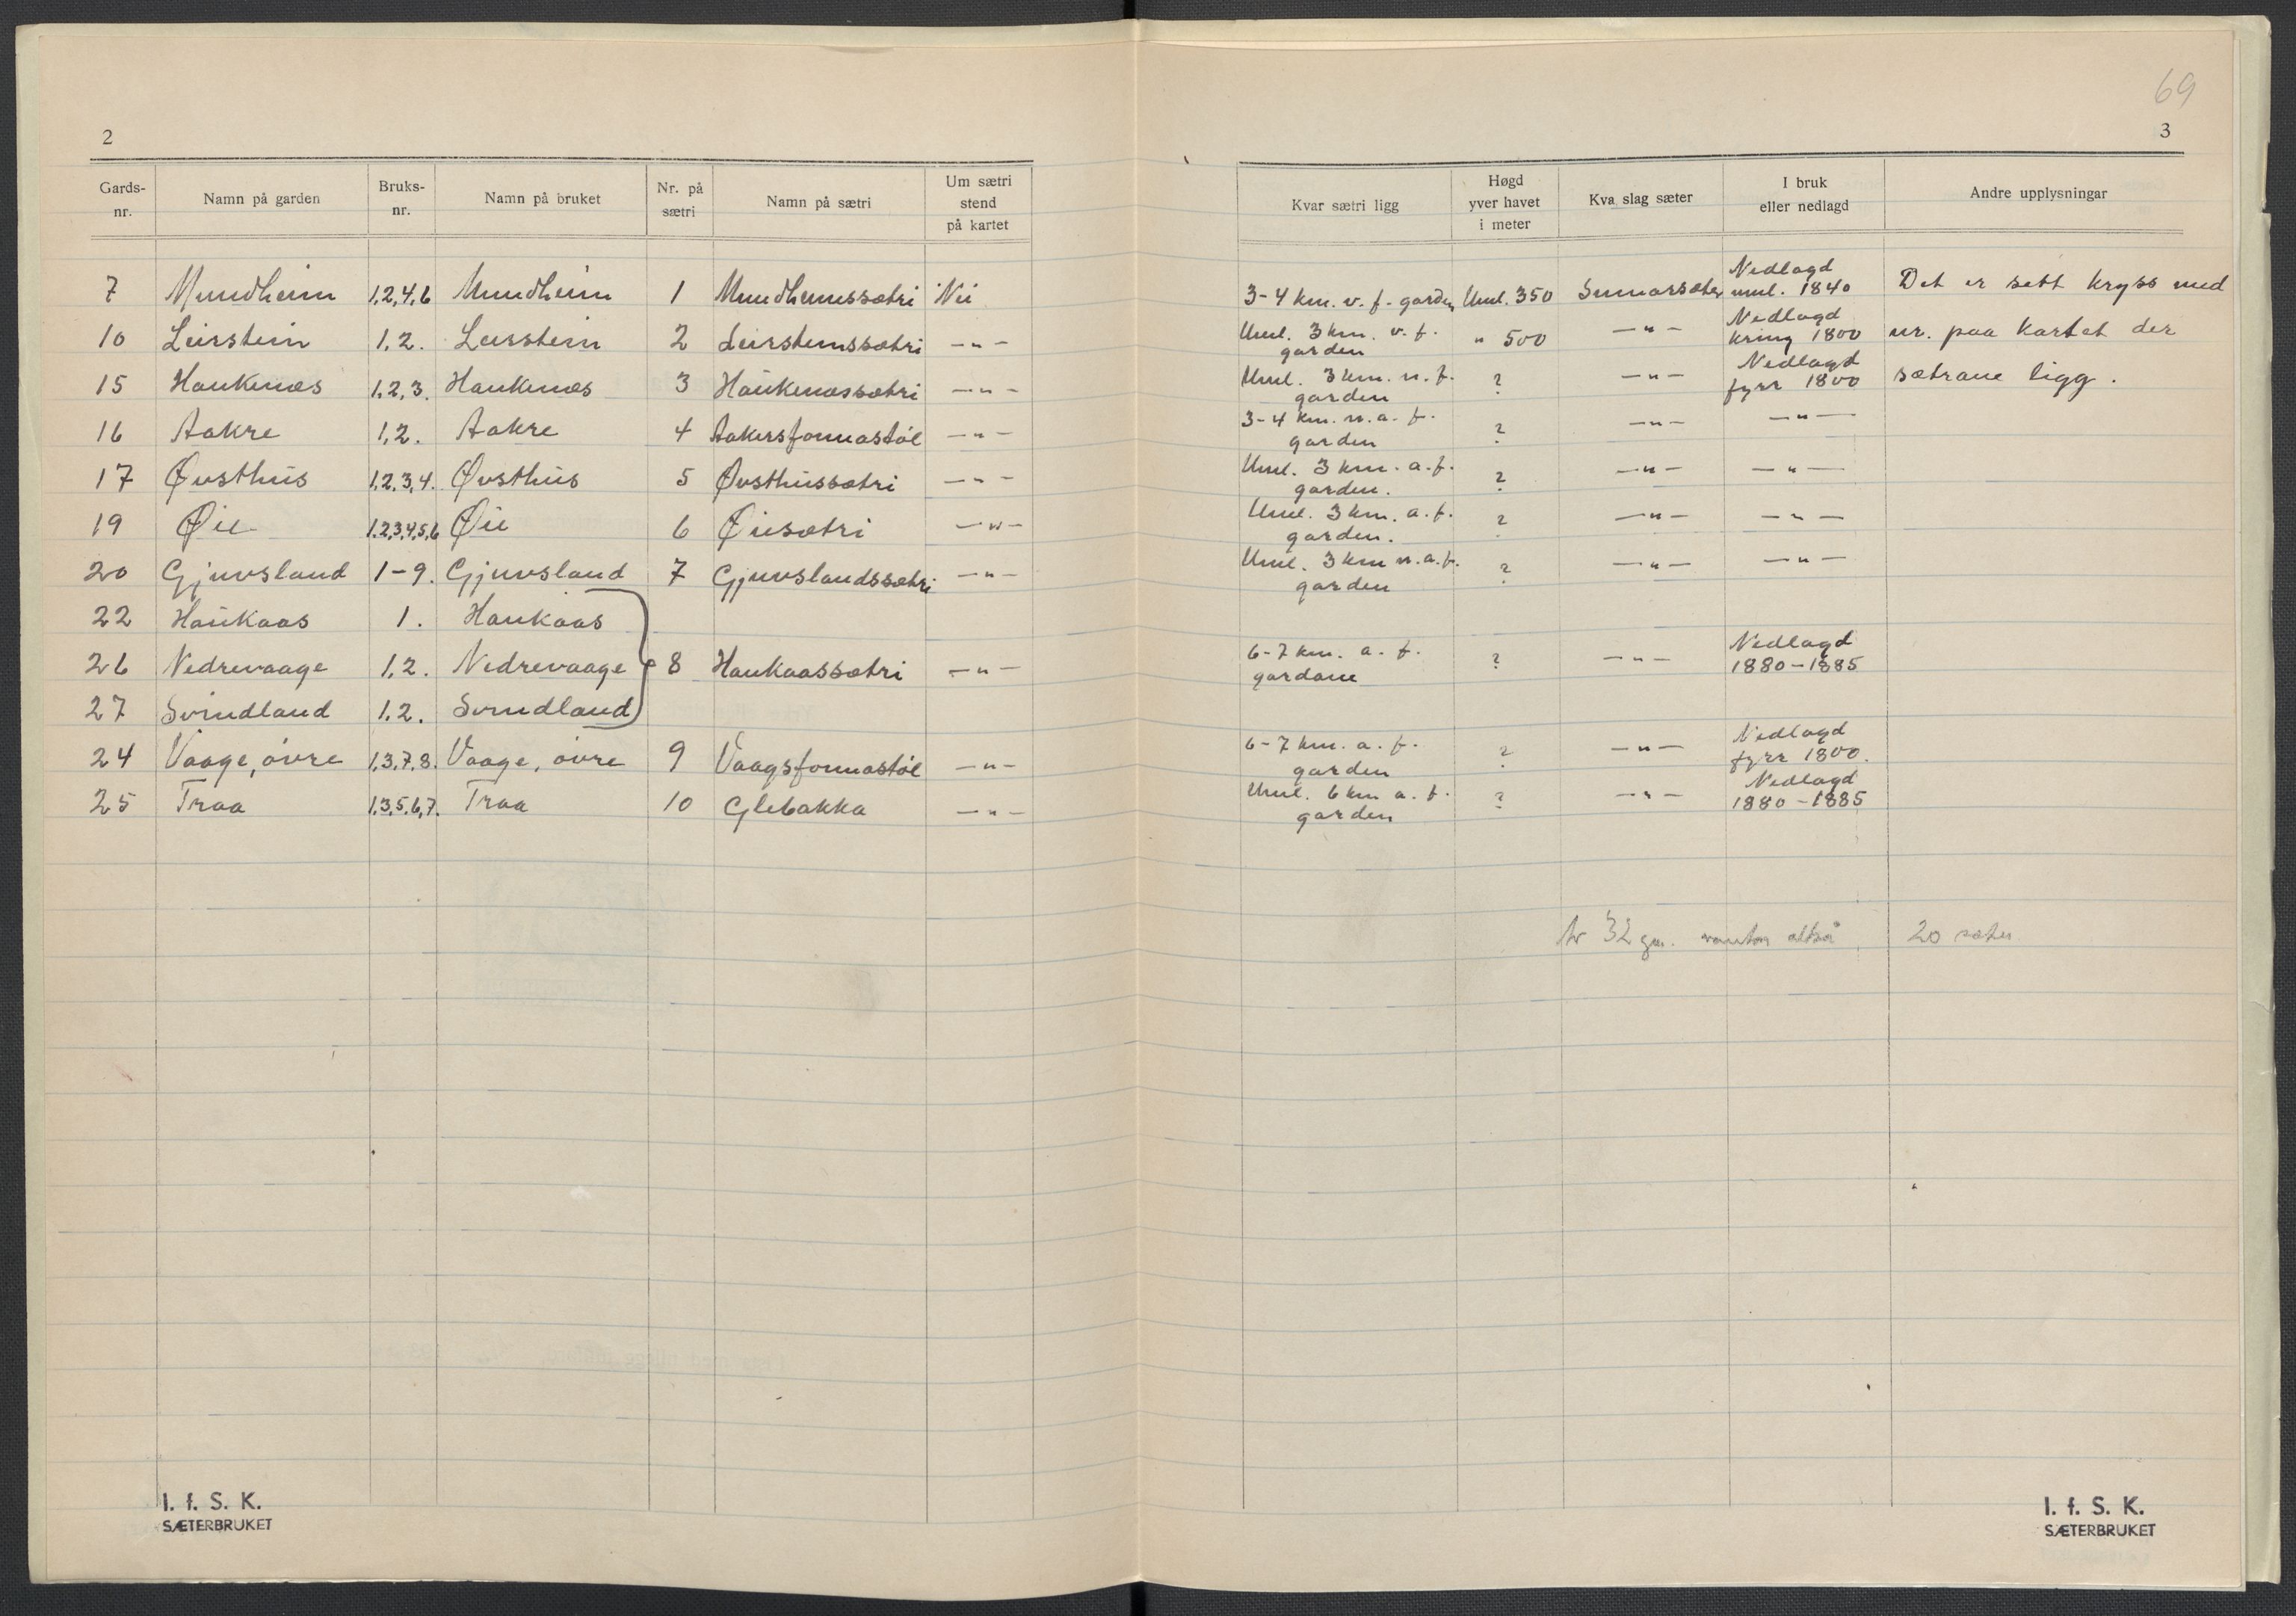 69
2
3
Gards-nr. Namn på garden Bruks-nr. Namn på bruket Nr. på sætri Namn på sætri Um sætri stend på kartet Kvar sætri ligg Høgd yver havet i meter Kva slag sæter I bruk eller nedlagd Andre upplysningar
7 Mundheim 1,2,4,6 Mundheim 1 Mundheimssætri Nei 3-4 km. v. f. garden Uml. 350 Sumarsæter Nedlagd uml. 1840 Det er sett kryss med
10 Leirstein 1,2. Leirstein 2 Leirsteinssætri —"— Uml. 3 km. v. f. garden " 500 —"— Nedlagd kring 1800 nr. paa kartet der
15 Haukenæs 1,2,3. Haukenæs 3 Haukenæssætri —"— Uml. 3 km. n. f. garden ? —"— Nedlagd fyrr 1800 sætrane ligg.
16 Aakre 1,2. Aakre 4 Aakersfonnastøl —"— 3-4 km. n. a. f. garden ? —"— —"—
17 Øvsthus 1,2,3,4. Øvsthus 5 Øvsthussætri —"— Uml. 3 km. a. f. garden. ? —"— —"—
19 Øie 1,2,3,4,5,6 Øie 6 Øiesætri —"— Uml. 3 km. a. f. garden. ? —"— —"—
20 Gjuvsland 1-9. Gjuvsland 7 Gjuvslandssætri —"— Uml. 3 km n. a. f. garden ? —"— —"—
22 Haukaas 1. Haukaas
26 Nedrevaage 1,2. Nedrevaage 8 Haukaassætri —"— 6-7 km. a. f. gardane ? —"— Nedlagd 1880-1885
27 Svindland 1,2. Svindland
24 Vaage, øvre 1,3,7,8. Vaage, øvre 9 Vaagsfonnastøl —"— 6-7 km. a. f. garden ? —"— Nedlagd fyrr 1800.
25 Traa 1,3,5,6,7. Traa 10 Glebakka —"— Uml. 6 km a. f. garden ? —"— Nedlagd 1880-1885
Av 32 gn. vantar altså 20 sæter
I. f. S. K.
SÆTERBRUKET
I. f. S. K.
SÆTERBRUKET